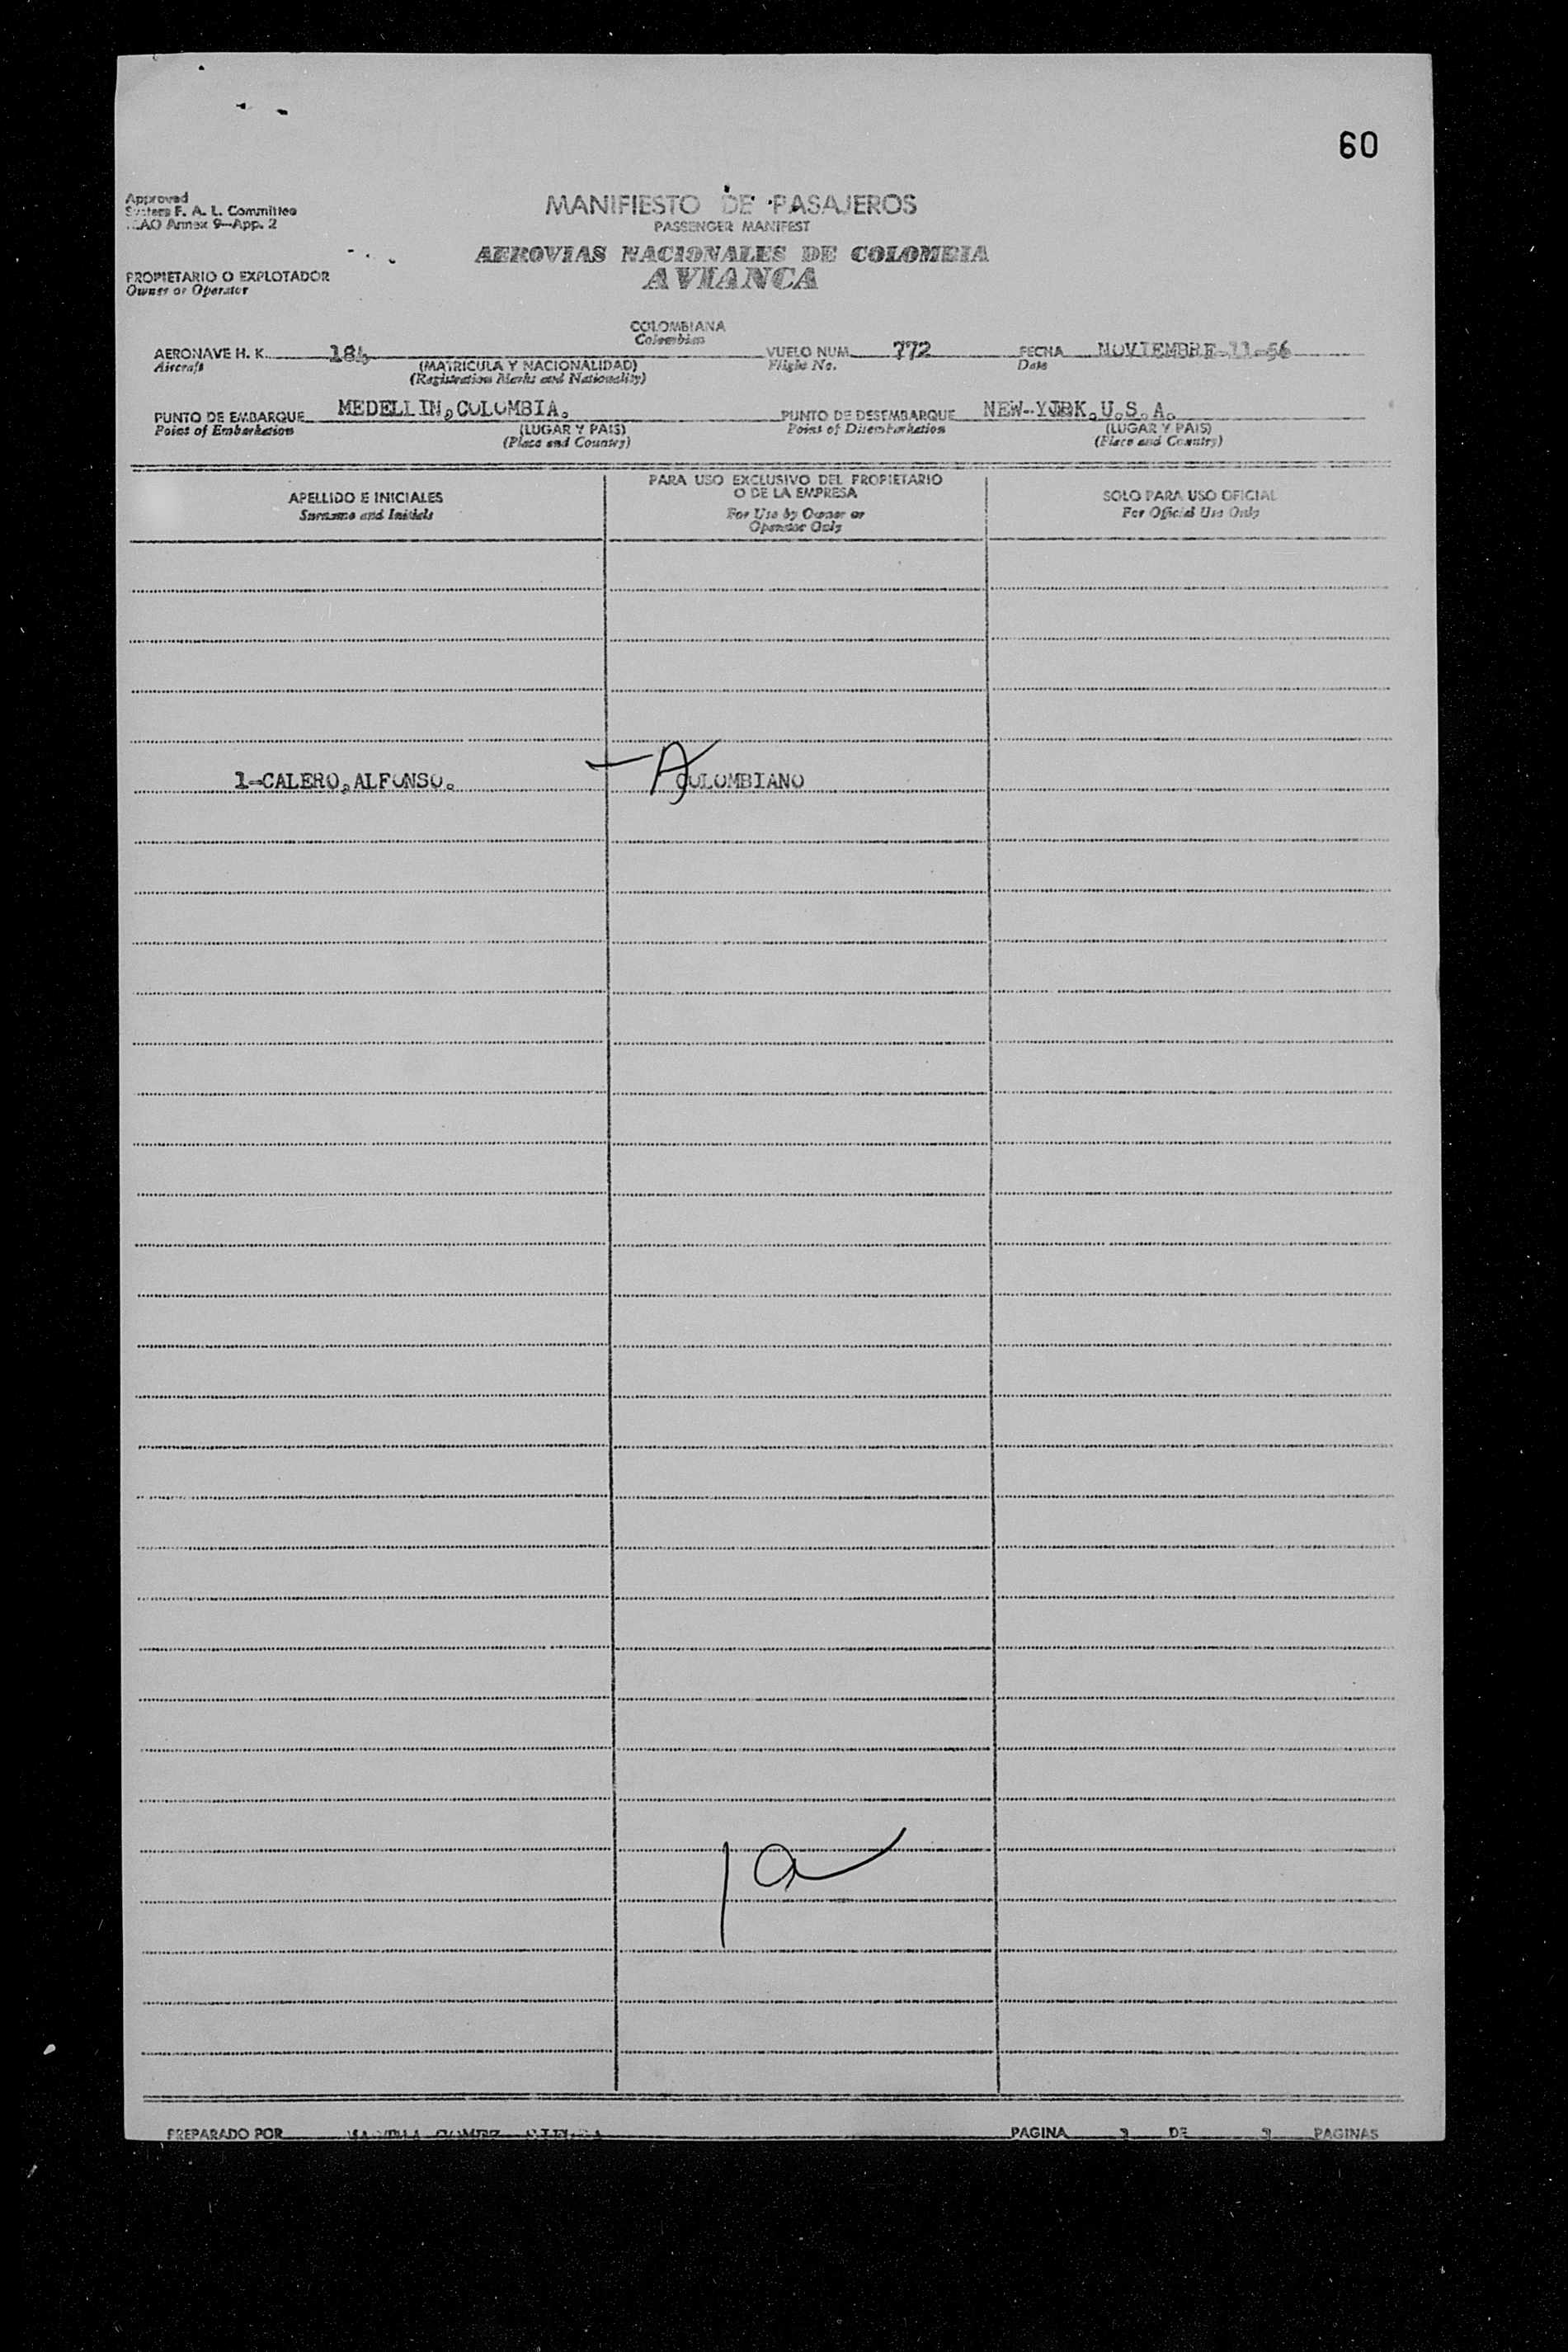 60
Approved
System F. A. L. Committee
ICAO Annex 9-App. 2
MANIFIESTO DE PASAJEROS
PASSENGER MANIFEST
AEROVIAS NACIONALES DE COLOMBIA
AVIANCA
PROPIETARIO O EXPLOTADOR
Owner or Operator
COLOMBIANA
Colombian
AERONAVE H. K. 184 VUELO NUM. 772 FECHA NOVIEMBRE-11-56
Aircraft (MATRICULA Y NACIONALIDAD) Flight No. Date
(Registration Marks and Nationality)
PUNTO DE EMBARQUE MEDELLIN,COLOMBIA. PUNTO DE DESEMBARQUE NEW-YORK.U.S.A.
Point of Embarkation (LUGAR Y PAIS) Point of Disembarkation (LUGAR Y PAIS)
(Place and Country) (Place and Country)
APELLIDO E INICIALES
Surname and Initials
PARA USO EXCLUSIVO DEL PROPIETARIO
O DE LA EMPRESA
For Use by Owner or
Operator Only
SOLO PARA USO OFICIAL
For Official Use Only
1-CALERO,ALFONSO. A COLOMBIANO
1a
PREPARADO POR PAGINA DE PAGINAS